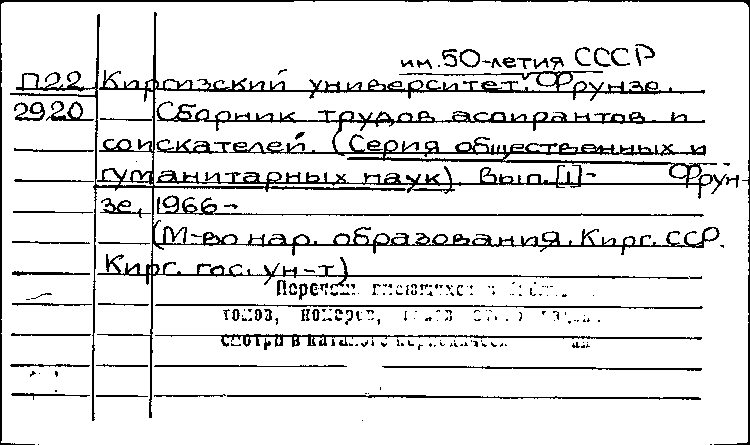 им. 50-летия СССР
П22 Киргизский университет. Фрунзе.
2920 Сборник трудов аспирантов и
соискателей. (Серия общественных и
гуманитарных наук). Вып. [1]- Фрун-
зе, 1966-
(М-во нар. образования. Кирг. ССР.
Кирг. гос. ун-т)
Перечень имеющихся в
томов, номеров,
смотри в каталоге